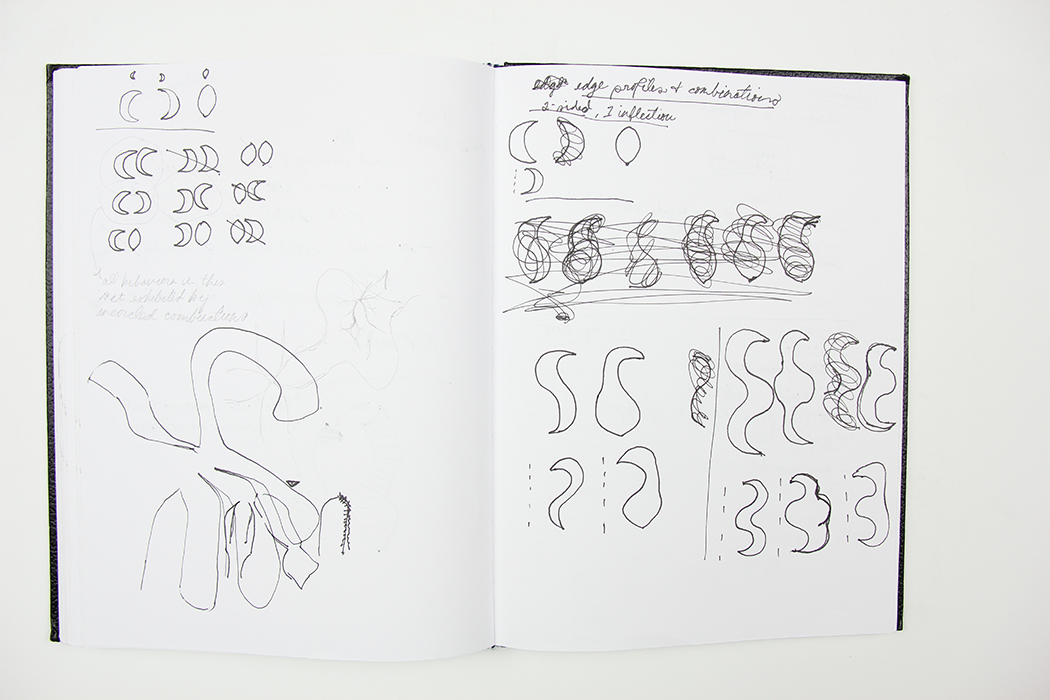 all behavior in this
not exhibited by
uncircled combinations
edge profiles + combinations
2-sided, 1 inflection